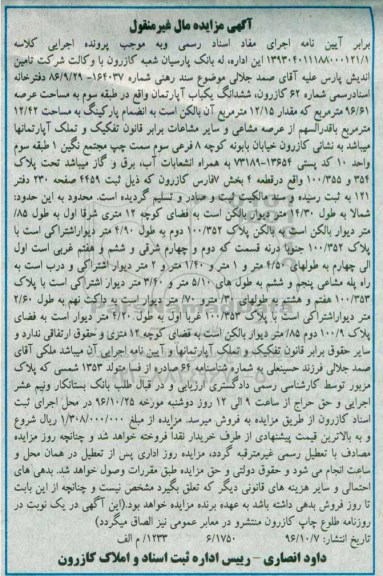 آگهی مزایده مال غیرمنقول
برابر آیین نامه اجرای مفاد اسناد رسمی وبه موجب پرونده اجرایی کلاسه
۱۳۹۳۰۴۰۱۱۱۸۸۰۰۰۱۲۱/۱ این اداره، له بانک پارسیان شعبه کازرون با وکالت شرکت تامین
اندیش پارس علیه آقای صمد جلالی موضوع سند رهنی شماره ۱۶۴۰۳۷- ۸۶/۹/۲۹ دفترخانه
اسنادرسمی شماره ۶۲ کازرون، ششدانگ یکباب آپارتمان واقع در طبقه سوم به مساحت عرصه
۹۶/۶۱ مترمربع که مقدار ۱۲/۱۵ مترمربع آن بالکن است به انضمام پارکینگ به مساحت ۱۲/۴۲
مترمربع باقدرالسهم از عرصه مشاعی و سایر مشاعات برابر قانون تفکیک و تملک آپارتمانها
میباشد به نشانی کازرون خیابان بابونه کوچه ۸ فرعی سوم سمت چپ مجتمع نگین ۱ طبقه سوم
واحد ۱۰ کد پستی ۱۳۶۵۴-۷۳۱۸۹ به همراه انشعابات آب، برق و گاز میباشد تحت پلاک
۳۵۴ و ۱۰۰/۳۵۵ واقع درقطعه ۴ بخش ۷فارس کازرون که ذیل ثبت ۴۴۵۹ صفحه ۲۳۰ دفتر
۱۲۱ به ثبت رسیده و سند مالکیت ثبت و صادر و تسلیم گردیده است. محدود به این حدود:
شمالا به طول ۱۴/۳۰ متر دیوار بالکن است به فضای کوچه ۱۲ متری شرقا اول به طول ۸۵/
متر دیوار بالکن است به بالکن پلاک ۱۰۰/۳۵۲ دوم به طول ۴/۹۰ متر دیواراشتراکی است با
پلاک ۱۰۰/۳۵۲ جنوبا درنه قسمت که دوم و چهارم شرقی و ششم و هفتم غربی است اول
الی چهارم به طولهای ۴/۵۰ متر و ۱ متر و ۱/۴۰ متر و ۲ متر دیوار اشتراکی و درب است به
راه پله مشاعی پنجم و ششم به طول های ۵/۱۰ متر و ۳/۴۰ متر دیوار اشتراکی است با پلاک
۱۰۰/۳۵۳ هفتم و هشتم به طولهای ۱/۳۰ مترو ۷۰/ متر دیوار است به داکت نهم به طول ۲/۶۰
متر دیواراشتراکی است با پلاک ۱۰۰/۳۵۳ غربا اول به طول ۴/۲۰ متر دیوار است به فضای
پلاک ۱۰۰/۹ دوم ۸۵/ متر دیوار بالکن است به فضای کوچه ۱۲ متری و حقوق ارتفاقی ندارد و
سایر حقوق برابر قانون تفکیک و تملک آپارتمانها و آیین نامه اجرایی آن میباشد ملکی آقای
صمد جلالی فرزند حسینعلی به شماره شناسنامه ۶۴ صادره از فسا متولد ۱۳۵۳ شمسی که پلاک
مزبور توسط کارشناس رسمی دادگستری ارزیابی و در قبال طلب بانک بستانکار ونیم عشر
اجرایی و حق حراج از ساعت ۹ الی ۱۲ روز دوشنبه مورخه ۹۶/۱۰/۲۵ در محل اجرای ثبت
اسناد کازرون از طریق مزایده به فروش میرسد. مزایده از مبلغ ۱/۳۰۸/۰۰۰/۰۰۰ ریال شروع
و به بالاترین قیمت پیشنهادی از طرف خریدار نقدا فروخته خواهد شد و چنانچه روز مزایده
مصادف با تعطیل رسمی غیرمترقبه گردد، مزایده روز اداری پس از تعطیل در همان محل و
ساعت انجام می شود و حقوق دولتی و حق مزایده طبق مقررات وصول خواهد شد. بدهی های
احتمالی و سایر هزینه های قانونی دیگر که تعلق بگیرد مشخص نیست و چنانچه از این بابت
تا روز فروش بدهی داشته باشد به عهده برنده مزایده خواهد بود.(این آگهی در یک نوبت در
روزنامه طلوع چاپ کازرون منتشرو در معابر عمومی نیز الصاق میگردد)
تاریخ انتشار: ۹۶/۱۰/۷ ۶/۱۷۵۰ ۱۲۳۳/ م الف
داود انصاری – رییس اداره ثبت اسناد و املاک کازرون